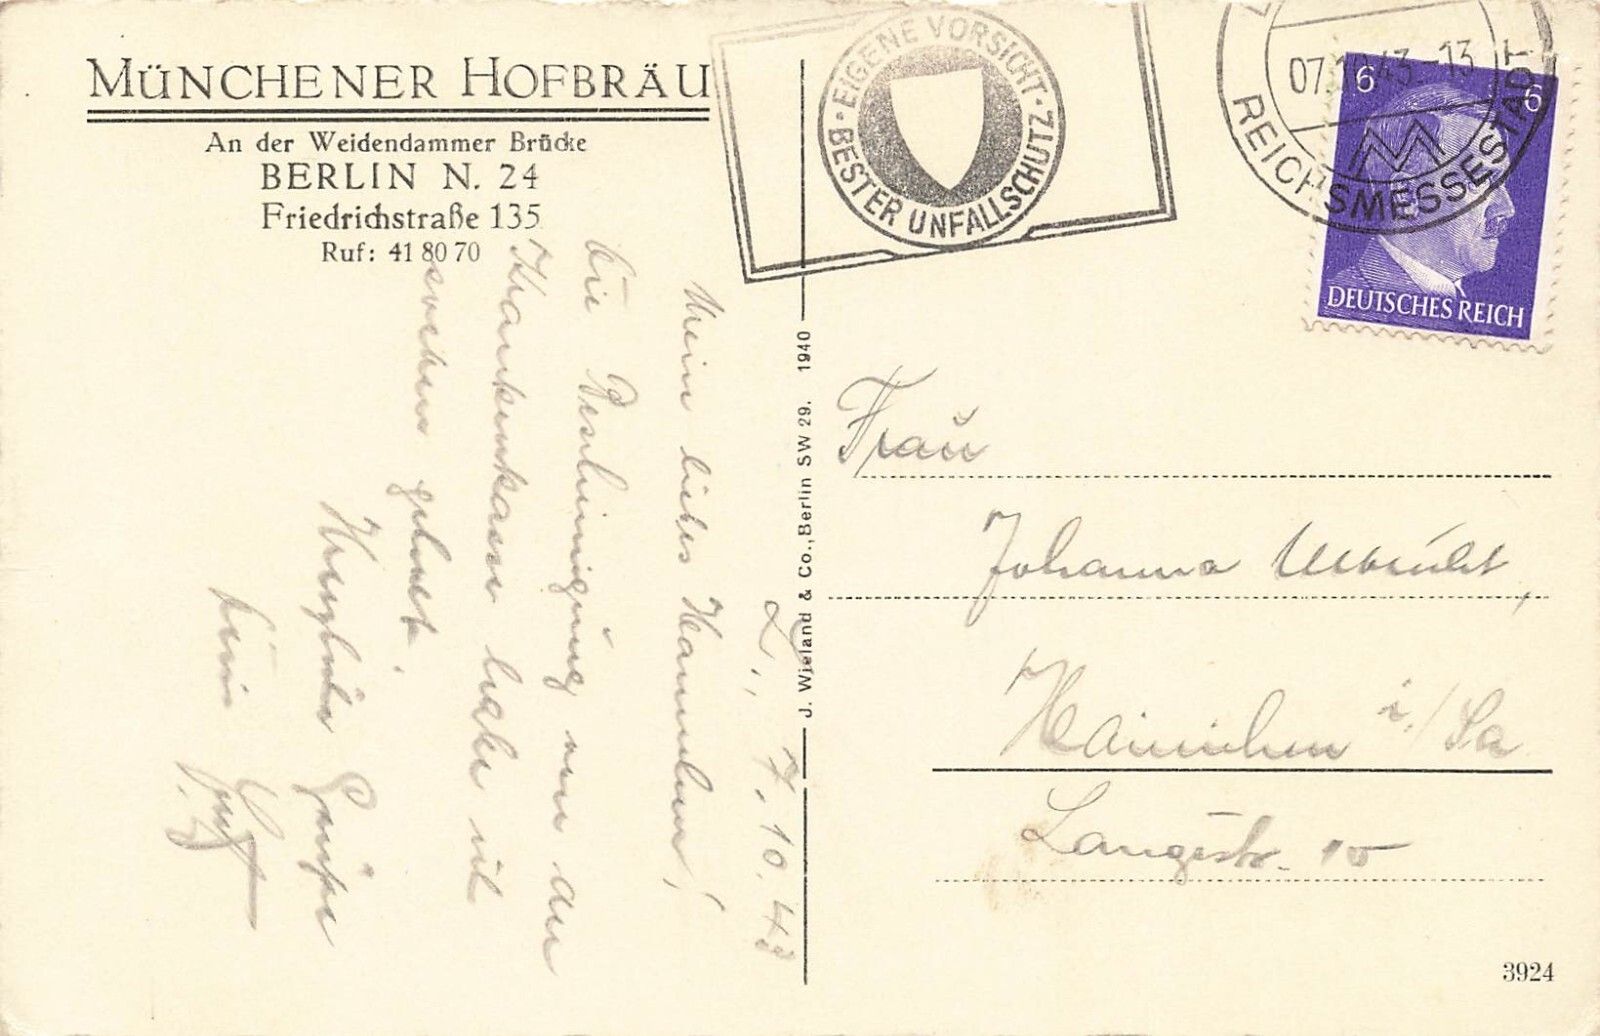 MÜNCHENER HOFBRÄU
An der Weidendammer Brücke
BERLIN N. 24
Friedrichstraße 135
Ruf: 41 80 70
EIGENE VORSICHT · BESTER UNFALLSCHUTZ ·
07.10.43-13
REICHSMESSESTADT
6 6
DEUTSCHES REICH
L., 7.10.43
Mein liebes Hannchen!
Die Bescheinigung von der
Krankenkasse habe ich
soeben geholt.
Herzliche Grüße
Dein
J. Wieland & Co., Berlin SW 29. 1940
Frau
Johanna
Hainichen i./Sa
Langestr. 10
3924